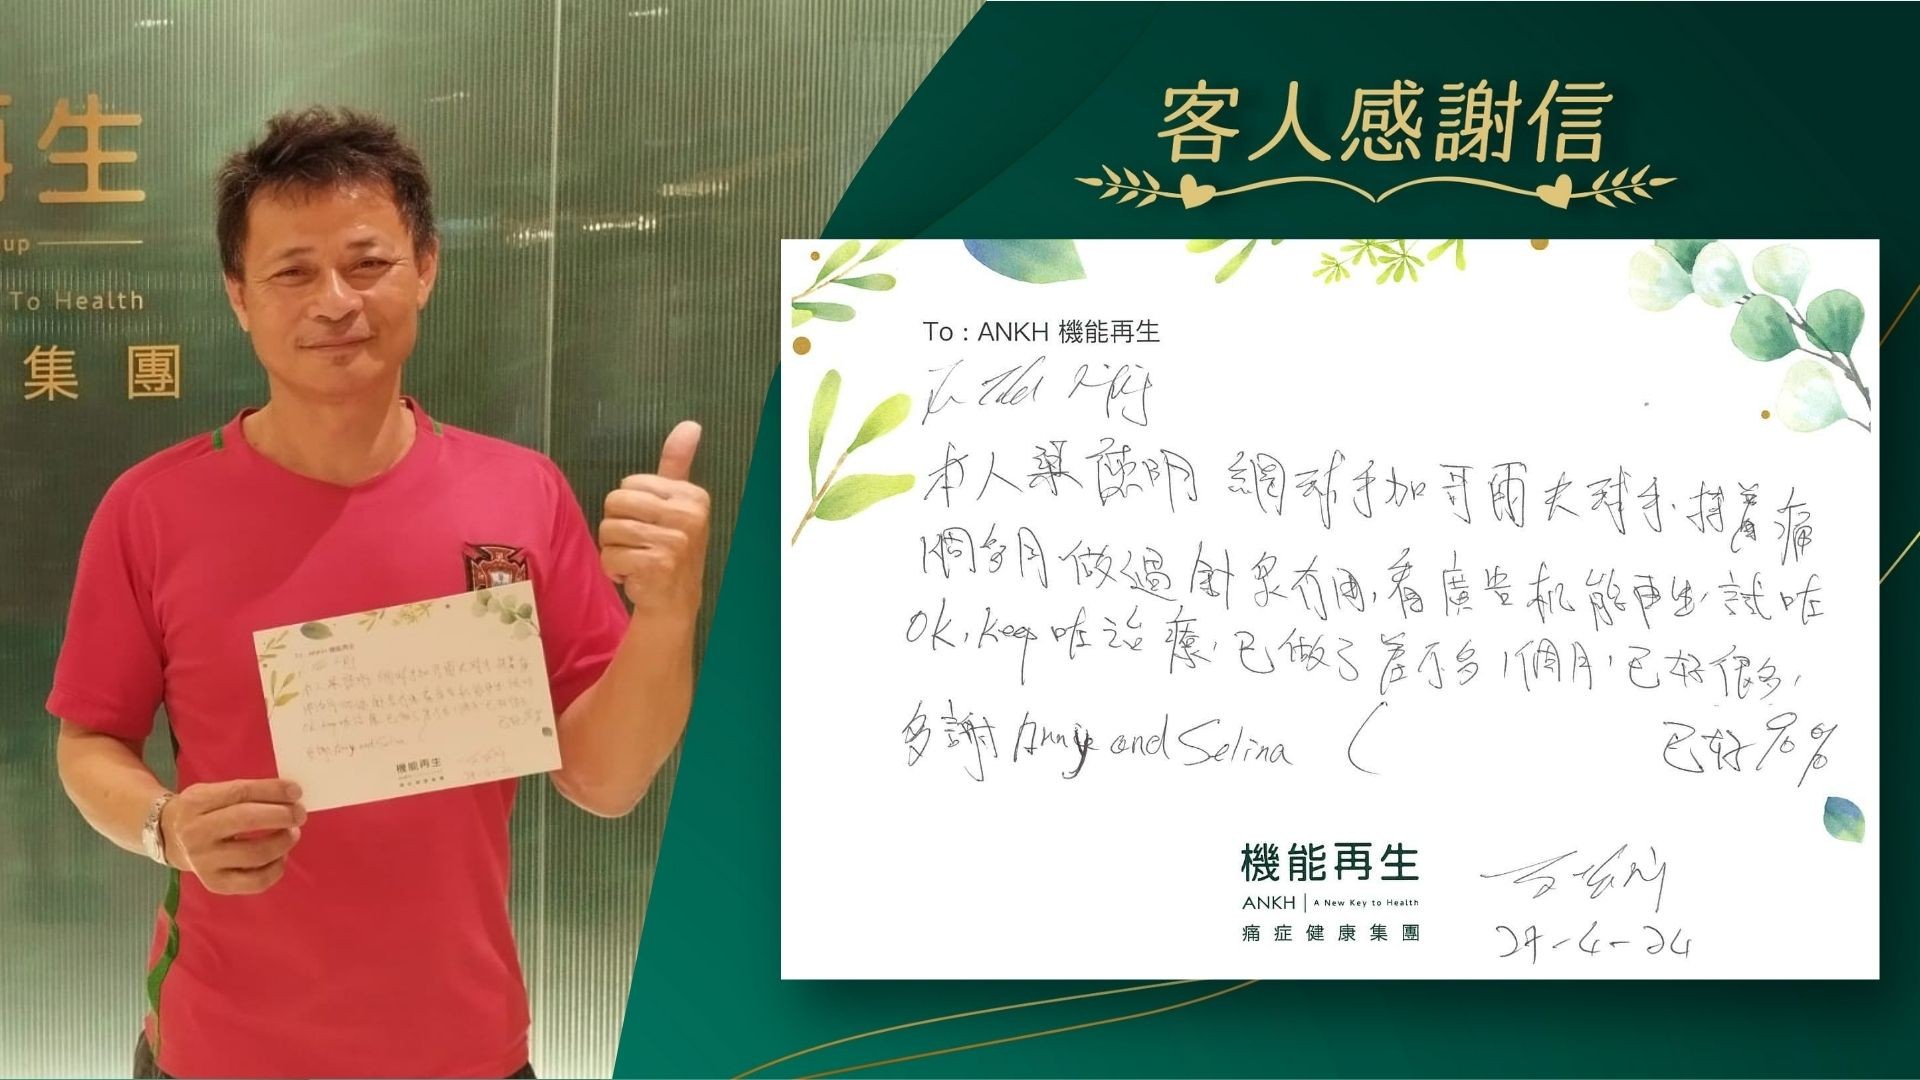 再生
up
To Health
集團
客人感謝信
To : ANKH 機能再生
本人葉 明 網球手加哥爾夫球手,持着痛
1個多月做過針灸冇用,看廣告机能再生,試咗
OK, keep咗治療,已做了差不多1個月,已好很多,
多謝 Annie and Selina (
已好90%
機能再生
ANKH | A New Key to Health
痛症健康集團
29-4-24